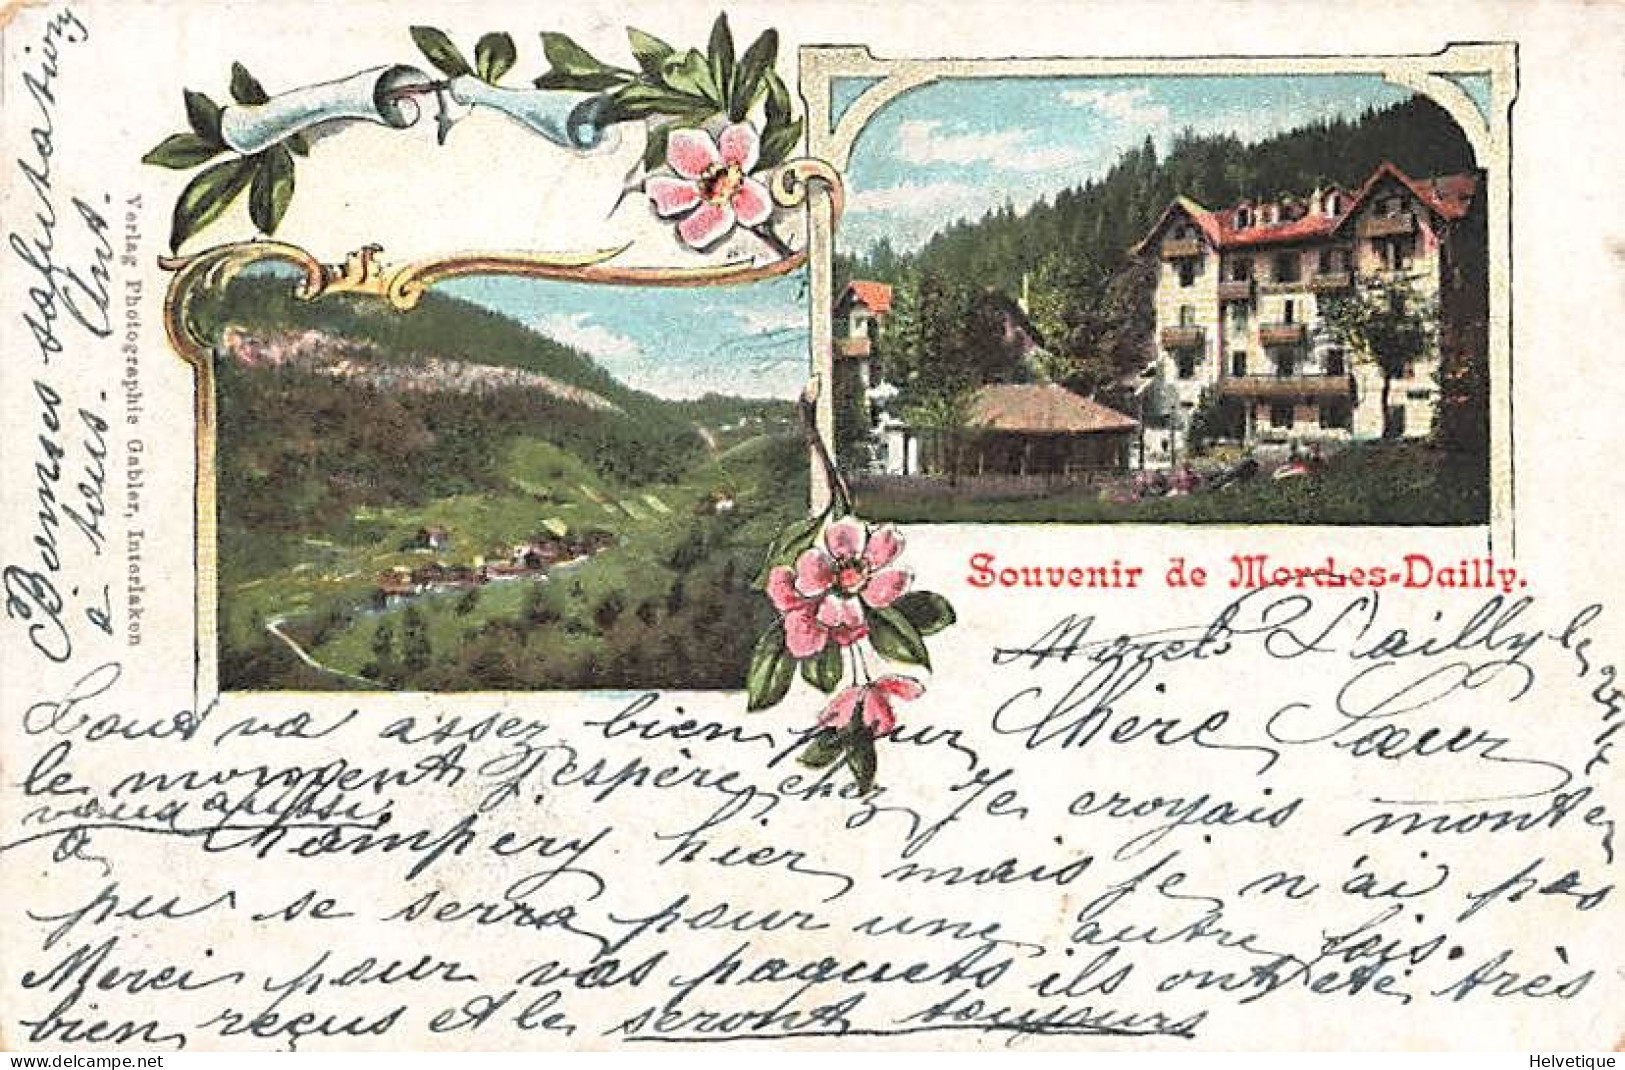 Bonnes salutations
à tous. Ant.
Verlag Photographie Gabler, Interlaken
Souvenir de Morcles-Dailly.
Morcles Dailly le
Chère Sœur
Tout va assez bien pour
le moment J'espère chez Je croyais monter
vous aussi.
à Champery hier mais je n'ai pas
pu se serra pour une autre fois.
Merci pour vos paquets ils ont été très
bien reçus et le seront toujours
Helvetique